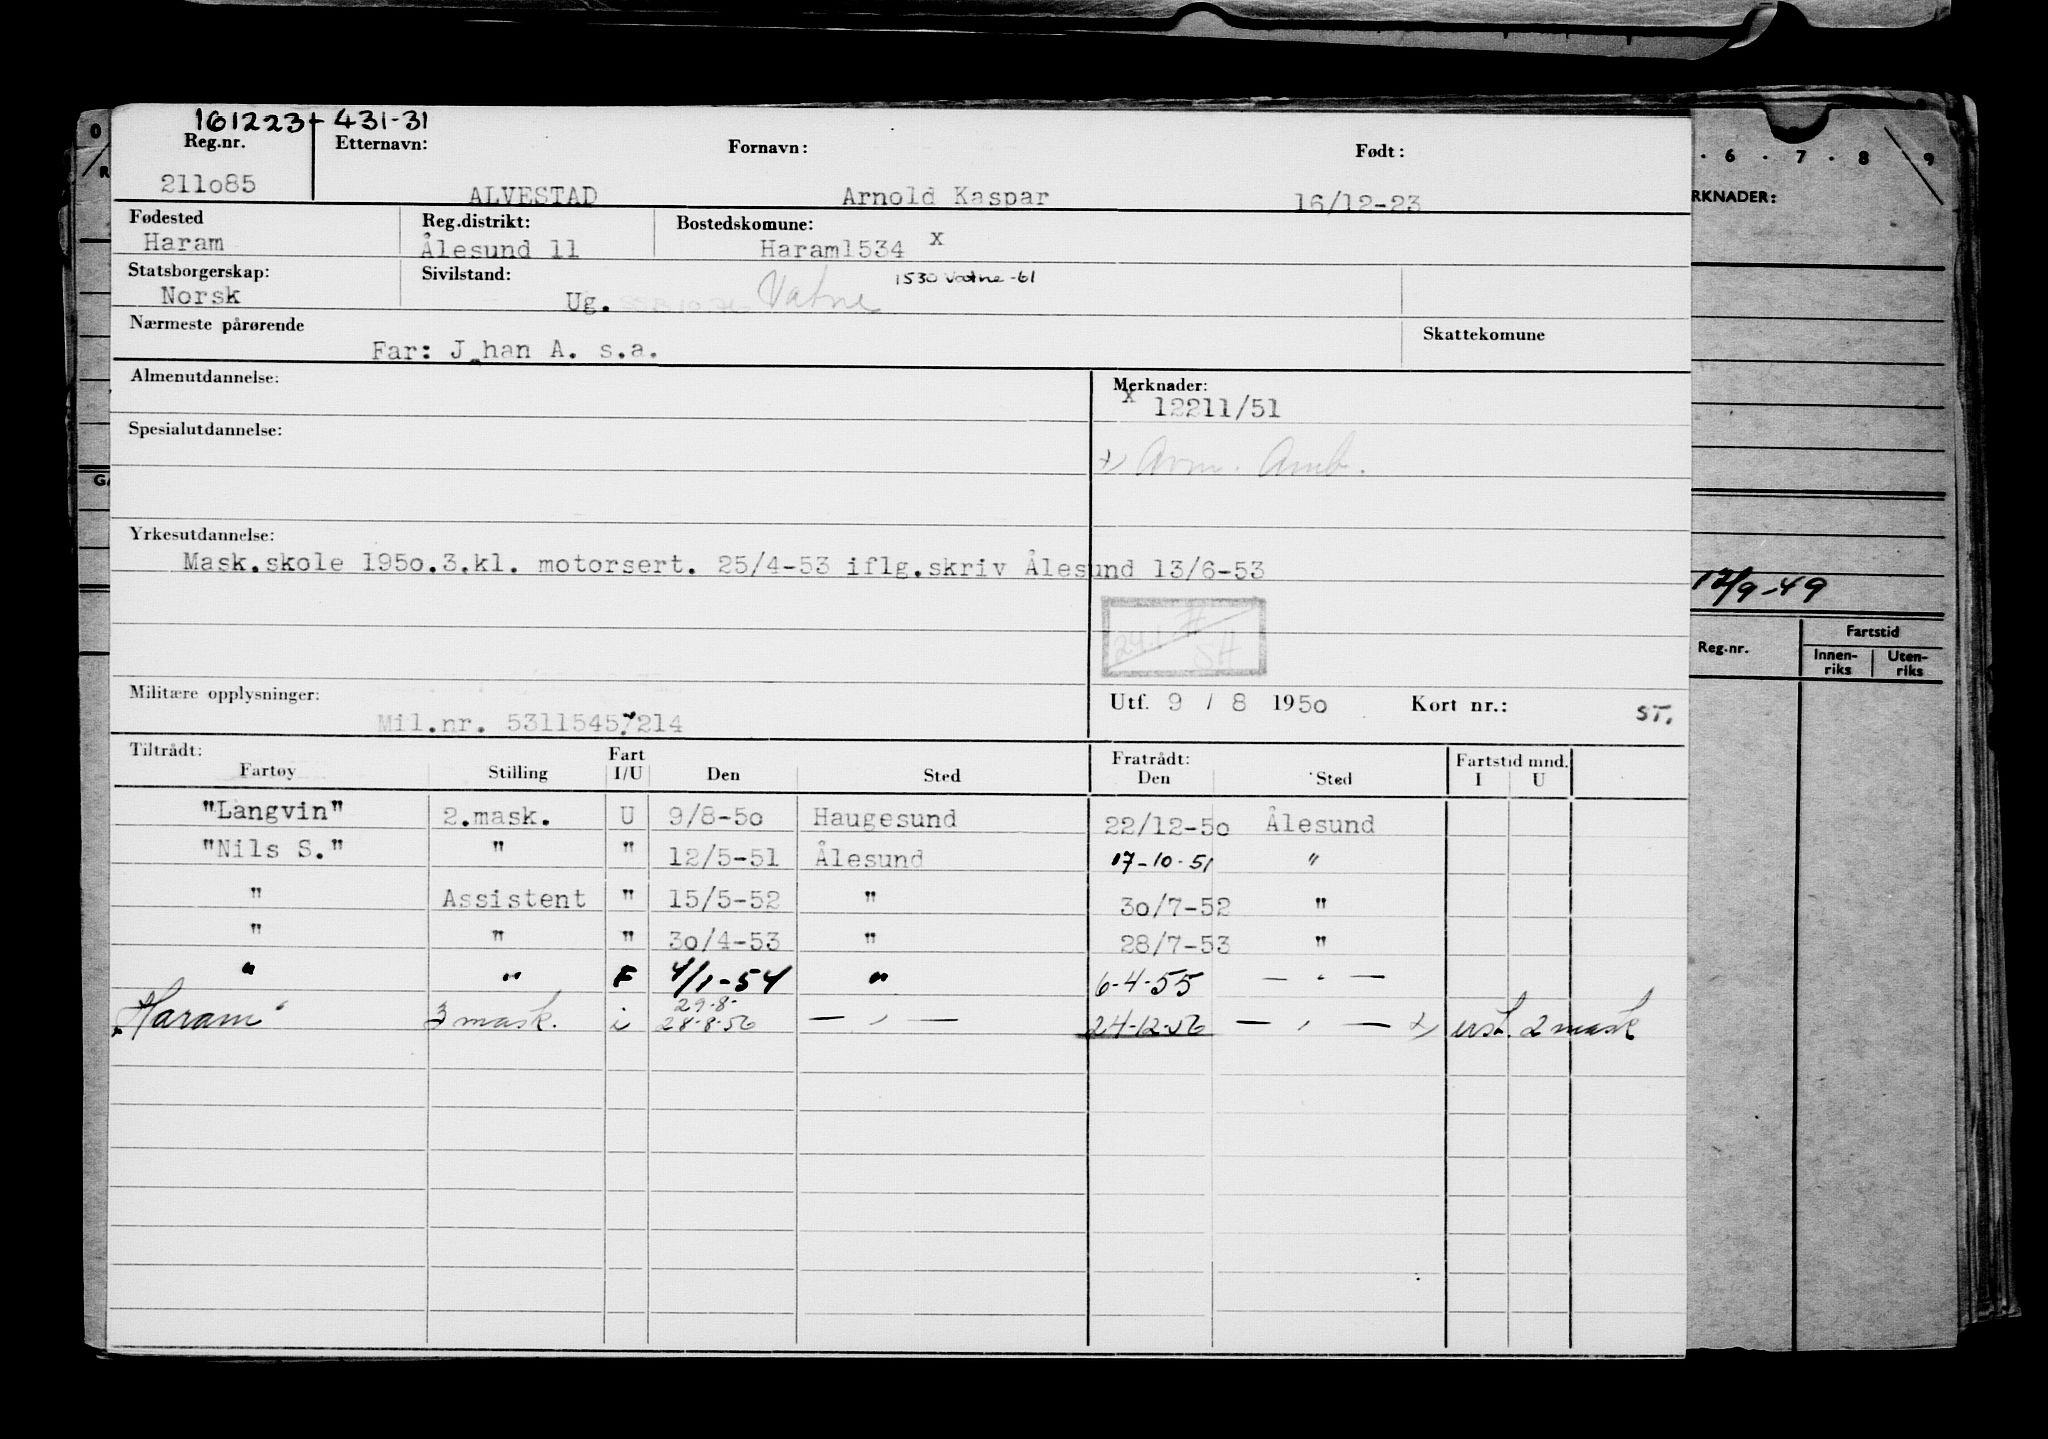 161223+ 431-31
Reg.nr. Etternavn: Fornavn: Født:
211o85 ALVESTAD Arnold Kaspar 16/12-23
Fødested Reg.distrikt: Bostedskomune:
Haram Ålesund 11 Haram1534 x
Statsborgerskap: Sivilstand: 1530 Vatne -61
Norsk Ug. Vatne
Nærmeste pårørende Skattekomune
Far: J han A. s.a.
Almenutdannelse: Merknader:
x 12211/51
Spesialutdannelse:
x) Avm. Amb.
Yrkesutdannelse:
Mask.skole 195o.3.kl. motorsert. 25/4-53 iflg.skriv Ålesund 13/6-53
Militære opplysninger: Utf. 9 / 8 195o Kort nr.: ST.
Mil.nr. 53115457214
Tiltrådt: Fart Fratrådt: Fartstid mnd.
Fartøy Stilling I/U Den Sted Den Sted I U
"Langvin" 2.mask. U 9/8-5o Haugesund 22/12-5o Ålesund
"Nils S." " " 12/5-51 Ålesund 17-10-51 "
" Assistent " 15/5-52 " 3o/7-52 "
" " " 3o/4-53 " 28/7-53 "
" " F 4/1-54 " 6-4-55 — " —
29-8-
"Haram" 3 mask. i 28-8-56 — " — 24-12-56 — " — x) ust. 2 mask
0
R
GA
. 6 . 7 . 8 . 9
RKNADER:
12/9-49
Reg.nr. Fartstid
Innen- Uten-
riks riks